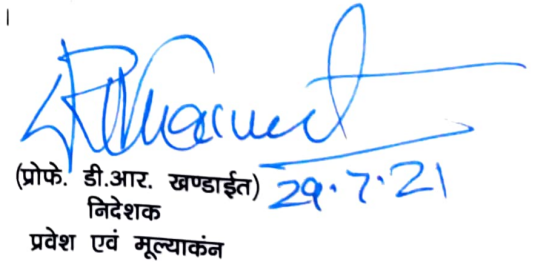 (प्रोफे. डी.आर. खण्डाईत) 29.7.21
निदेशक
प्रवेश एवं मूल्याकंन